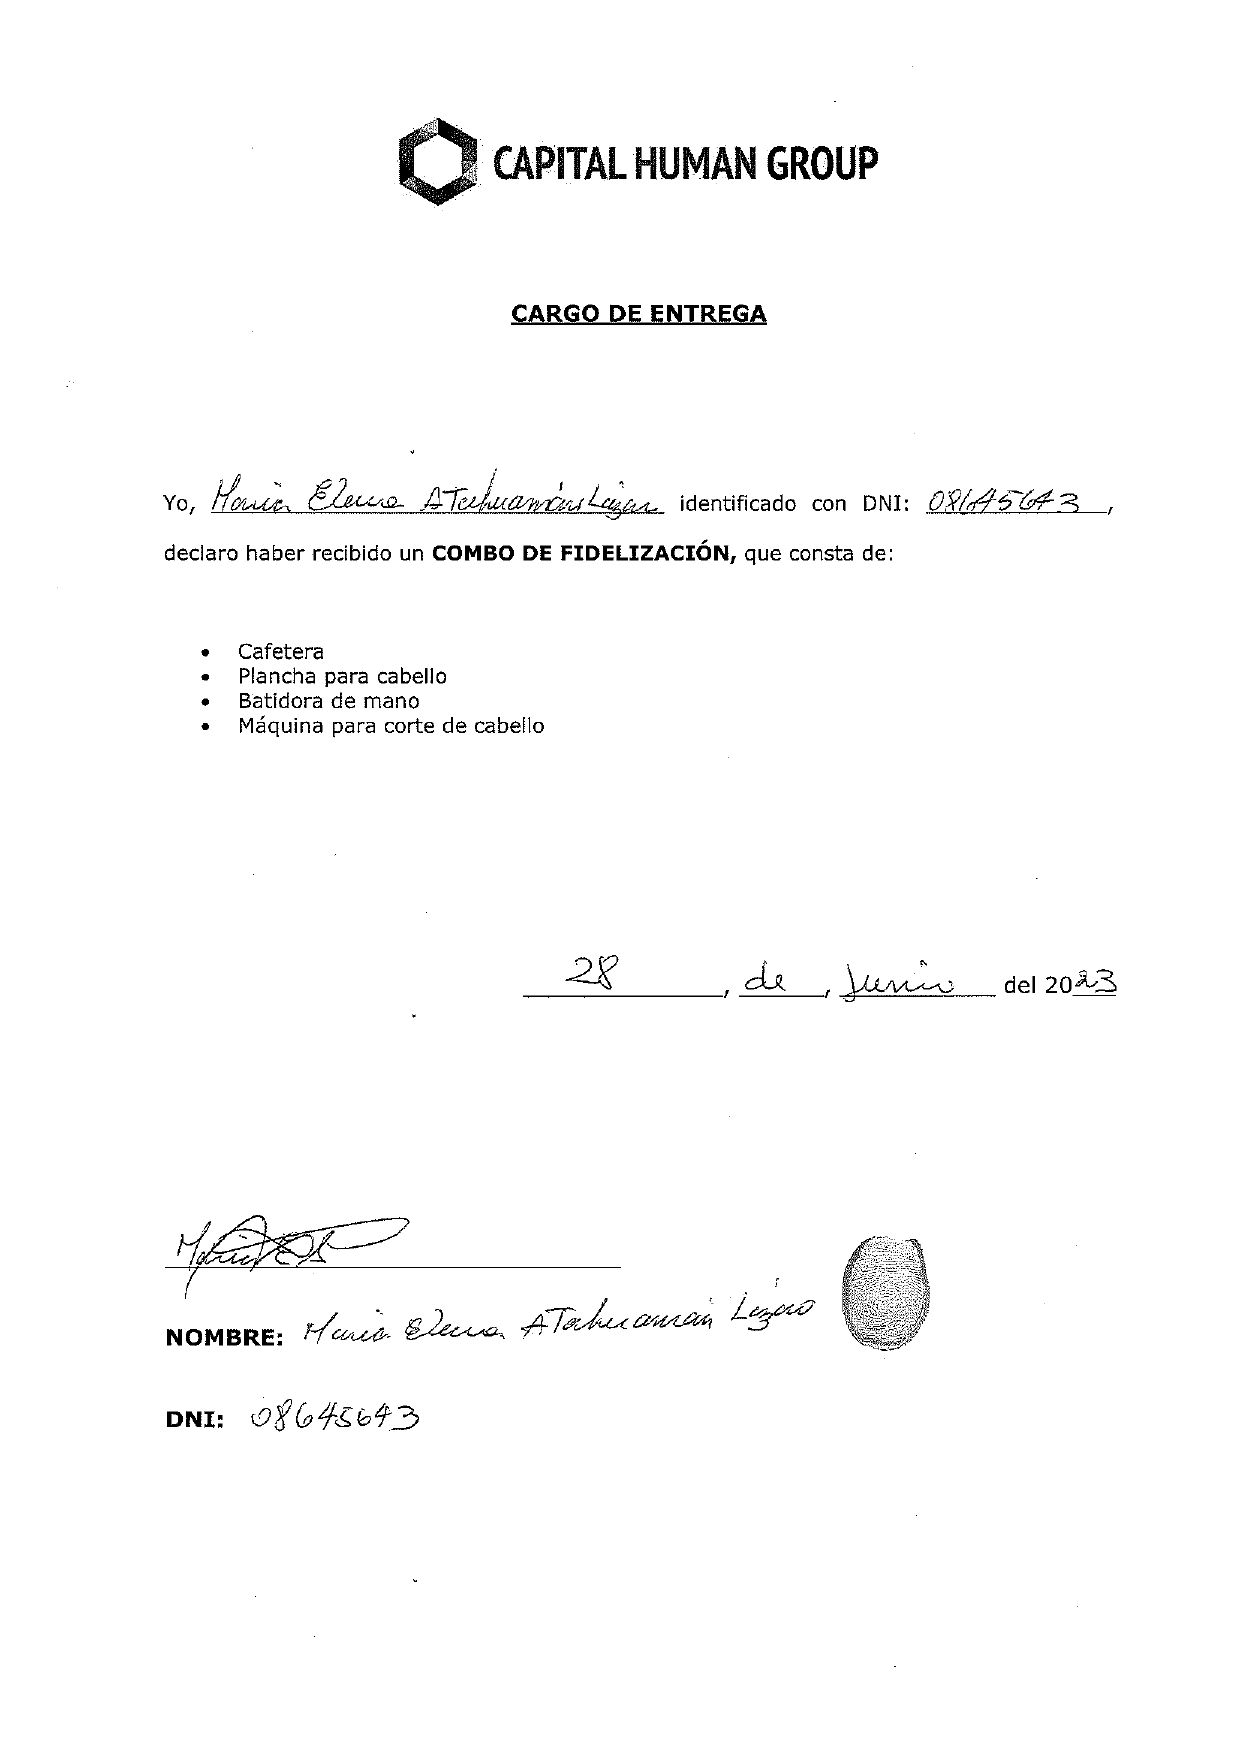 CAPITAL HUMAN GROUP
CARGO DE ENTREGA
Yo, Maria Elena Atahuamán Lázaro identificado con DNI: 08645643,
declaro haber recibido un COMBO DE FIDELIZACIÓN, que consta de:
• Cafetera
• Plancha para cabello
• Batidora de mano
• Máquina para corte de cabello
28, de, Junio del 2023
NOMBRE: Maria Elena Atahuamán Lázaro
DNI: 08645643